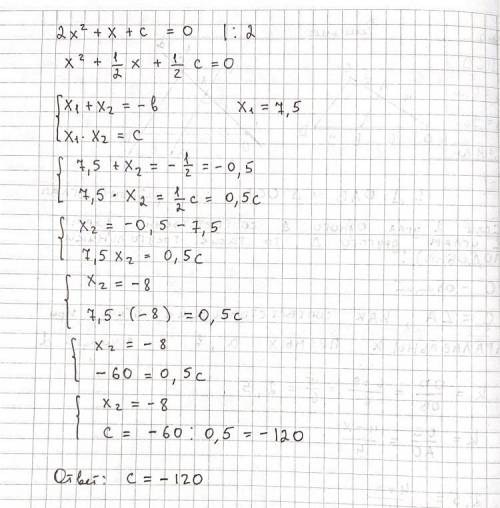 2x² + x + c = 0 |: 2
x² + 1/2 x + 1/2 c = 0
x₁ + x₂ = -в x₁ = 7,5
x₁ · x₂ = c
7,5 + x₂ = - 1/2 = -0,5
7,5 · x₂ = 1/2 c = 0,5c
x₂ = -0,5 - 7,5
7,5 x₂ = 0,5c
x₂ = -8
7,5 · (-8) = 0,5c
x₂ = -8
-60 = 0,5c
x₂ = -8
c = -60 : 0,5 = -120
Ответ: c = -120